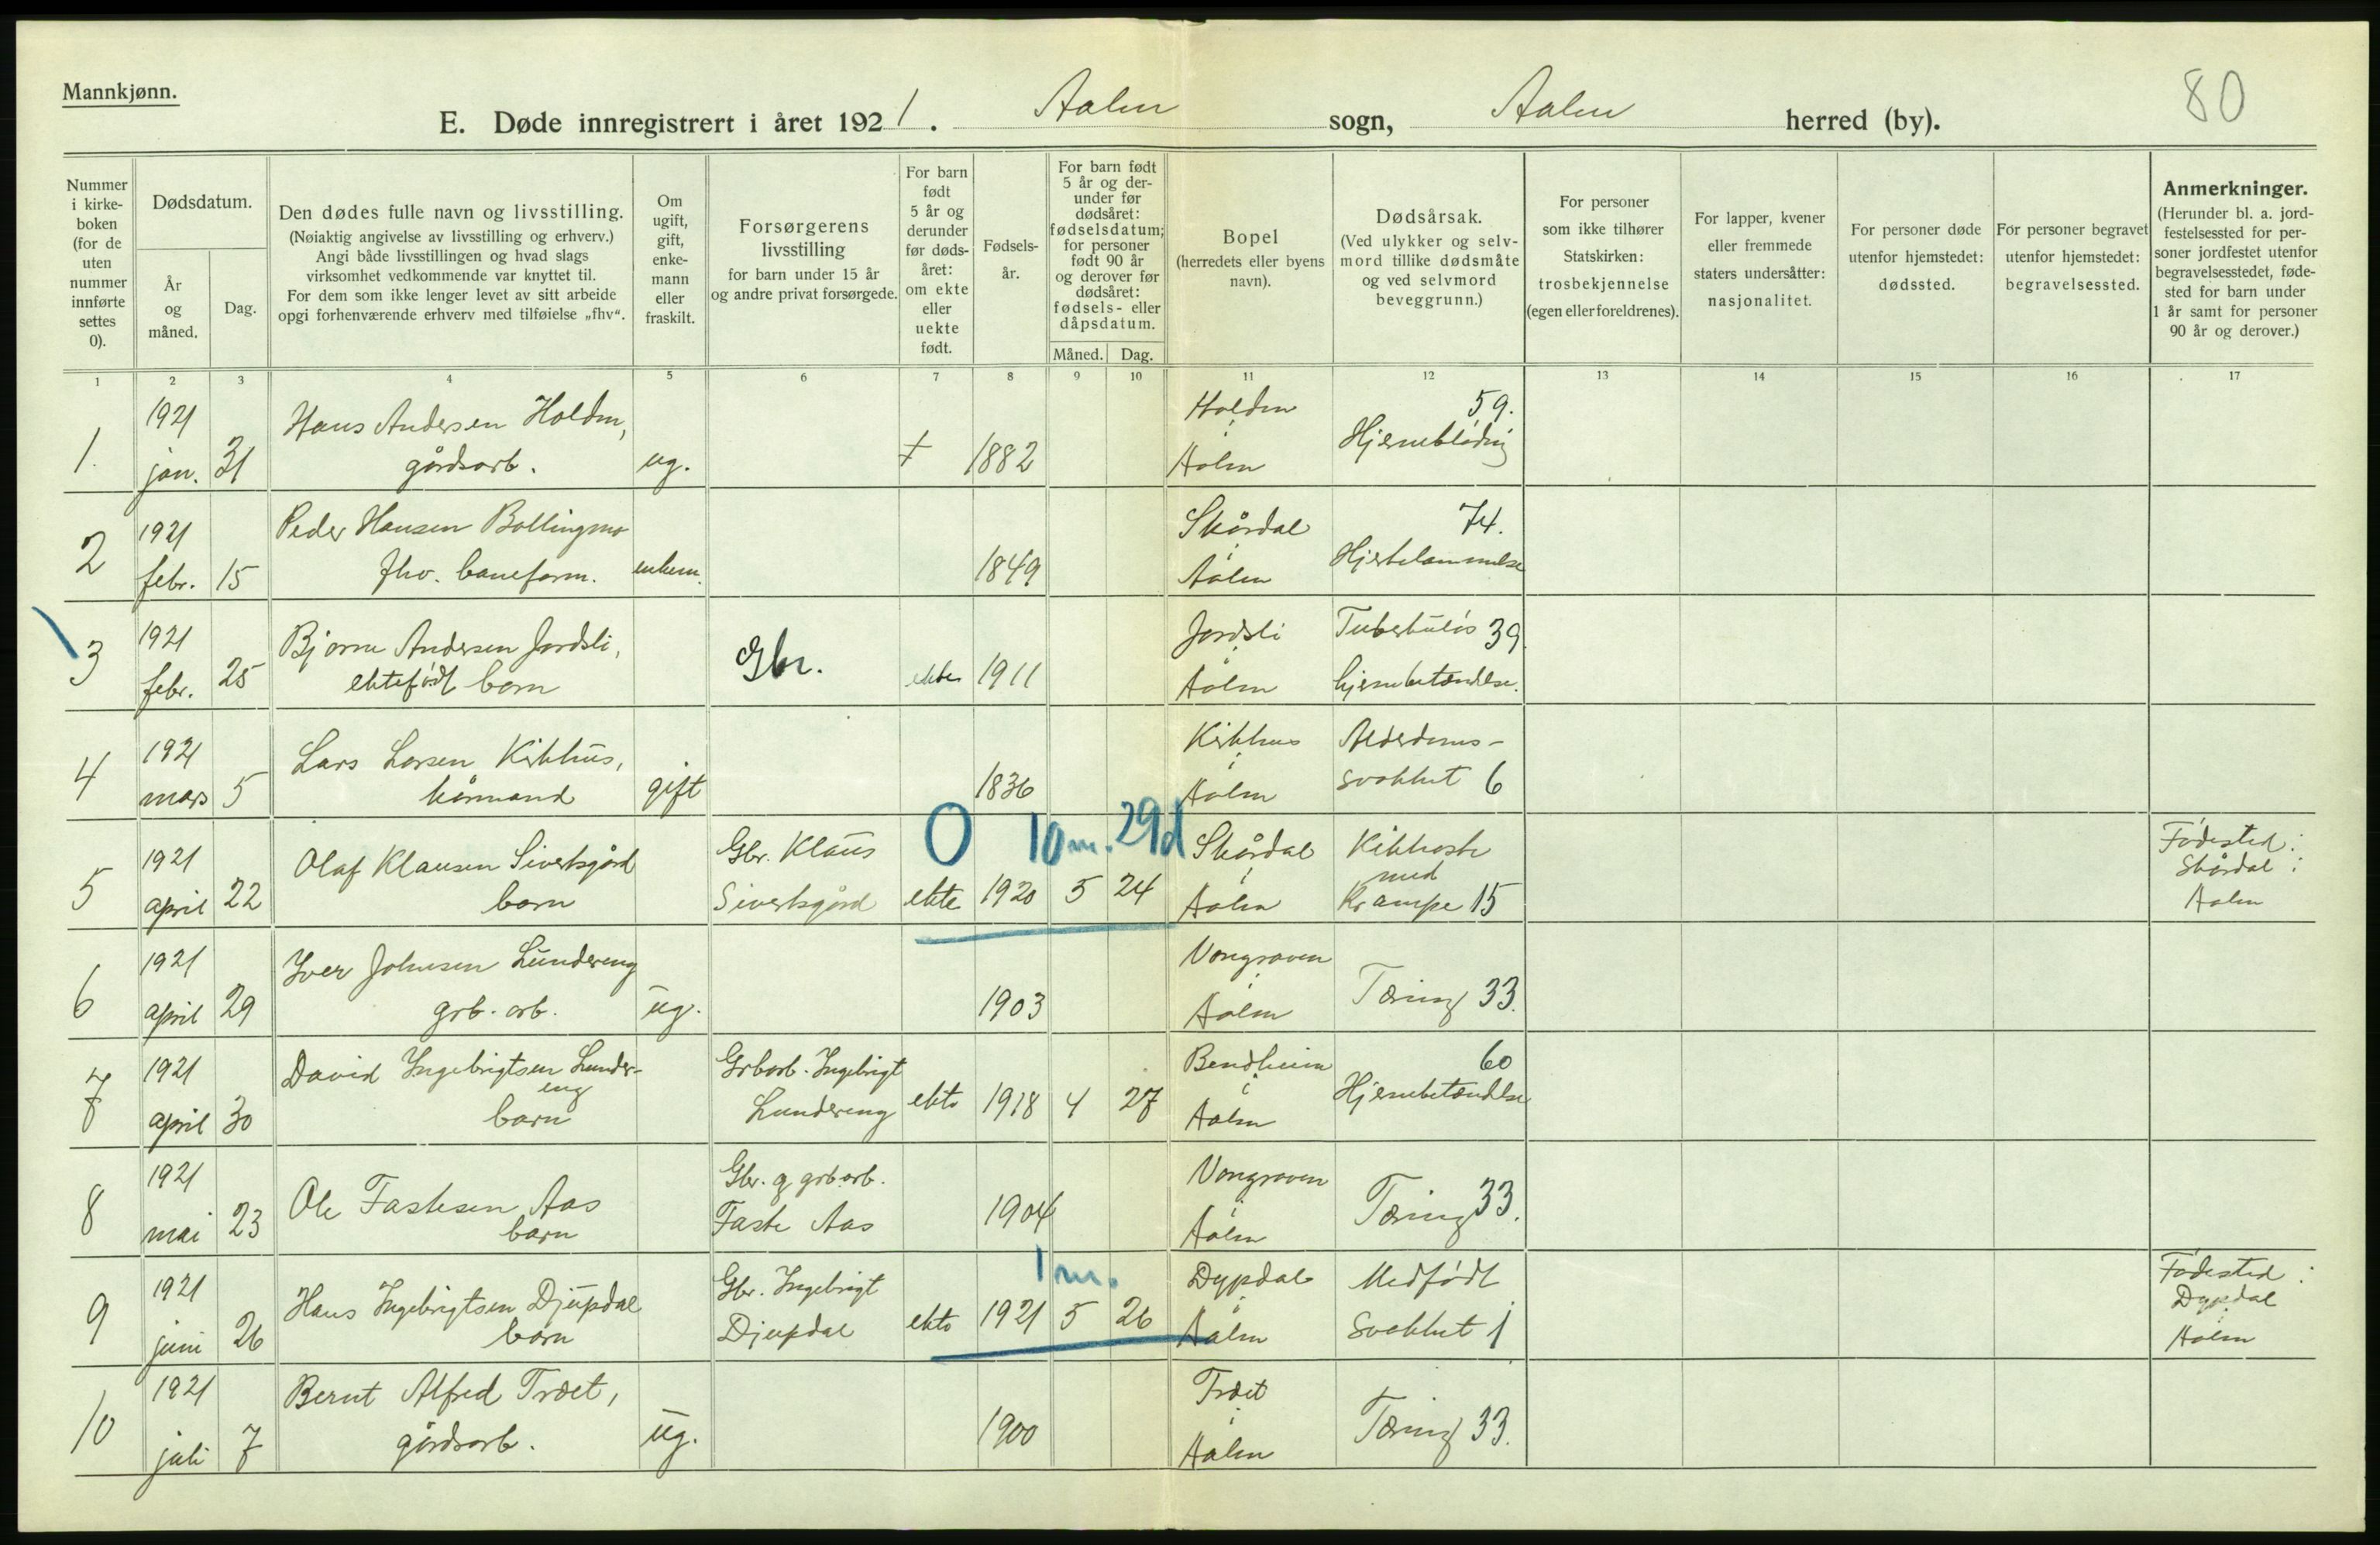 Mannkjønn.
E. Døde innregistrert i året 1921. Aalen sogn, Aalen herred (by).
80
Nummer i kirkeboken (for de uten nummer innførte settes 0).
Dødsdatum.
År og måned.
Dag.
Den dødes fulle navn og livsstilling.
(Nøiaktig angivelse av livsstilling og erhverv.)
Angi både livsstillingen og hvad slags
virksomhet vedkommende var knyttet til.
For dem som ikke lenger levet av sitt arbeide
opgi forhenværende erhverv med tilføielse „fhv“.
Om ugift, gift, enkemann eller fraskilt.
Forsørgerens livsstilling
for barn under 15 år
og andre privat forsørgede.
For barn født 5 år og derunder før dødsåret: om ekte eller uekte født.
Fødselsår.
For barn født 5 år og derunder før dødsåret: fødselsdatum; for personer født 90 år og derover før dødsåret: fødsels- eller dåpsdatum.
Måned.
Dag.
Bopel
(herredets eller byens navn).
Dødsårsak.
(Ved ulykker og selvmord tillike dødsmåte og ved selvmord beveggrunn.)
For personer som ikke tilhører Statskirken: trosbekjennelse (egen eller foreldrenes).
For lapper, kvener eller fremmede staters undersåtter: nasjonalitet.
For personer døde utenfor hjemstedet: dødssted.
For personer begravet utenfor hjemstedet: begravelsessted.
Anmerkninger.
(Herunder bl. a. jordfestelsessted for personer jordfestet utenfor begravelsesstedet, fødested for barn under 1 år samt for personer 90 år og derover.)
1 2 3 4 5 6 7 8 9 10 11 12 13 14 15 16 17
1. 1921 jan. 31 Hans Andersen Holden, gårdsarb. ug. 1882 Holden i Aalen 59. Hjerneblødnig
2 1921 febr. 15 Peder Hansen Bollingmo fhv. baneform. enkem. 1849 Skårdal i Aalen 74. Hjertelammelse
3 1921 febr. 25 Bjarne Andersen Jordsli, ektefødt barn Gbr. ekte 1911 Jordsli i Aalen Tuberkuløs 39 hjernebetændelse.
4 1921 mars 5 Lars Larsen Kirkhus, kårmand gift 1836 Kirkhus i Aalen Alderdoms-svakhet 6
0 10 m. 29d
5 1921 april 22 Olaf Klausen Sivertsgård barn Gbr. Klaus Sivertsgård ekte 1920 5 24 Skårdal i Aalen Kikhoste med Krampe 15 Fødested: Skårdal i Aalen
6 1921 april 29 Iver Johnsen Lundereng grb. arb. ug. 1903 Vongraven i Aalen Tæring 33.
7 1921 april 30 David Ingebrigtsen Lundereng barn Grbarb. Ingebrigt Lundereng ekte 1918 4 27 Bendheim i Aalen 60 Hjernebetændelse
8 1921 mai 23 Ole Fastesen Aas barn Gbr. g grbarb. Faste Aas 1904 Vongraven i Aalen Tæring 33.
1 m.
9 1921 juni 26 Hans Ingebrigtsen Djupdal barn Gbr. Ingebrigt Djupdal ekte 1921 5 26 Dypdal i Aalen Medfødt svakhet 1 Fødested: Dypdal i Aalen
10 1921 juli 7 Bernt Alfred Trøet, gårdsarb. ug. 1900 Trøet i Aalen Tæring 33.